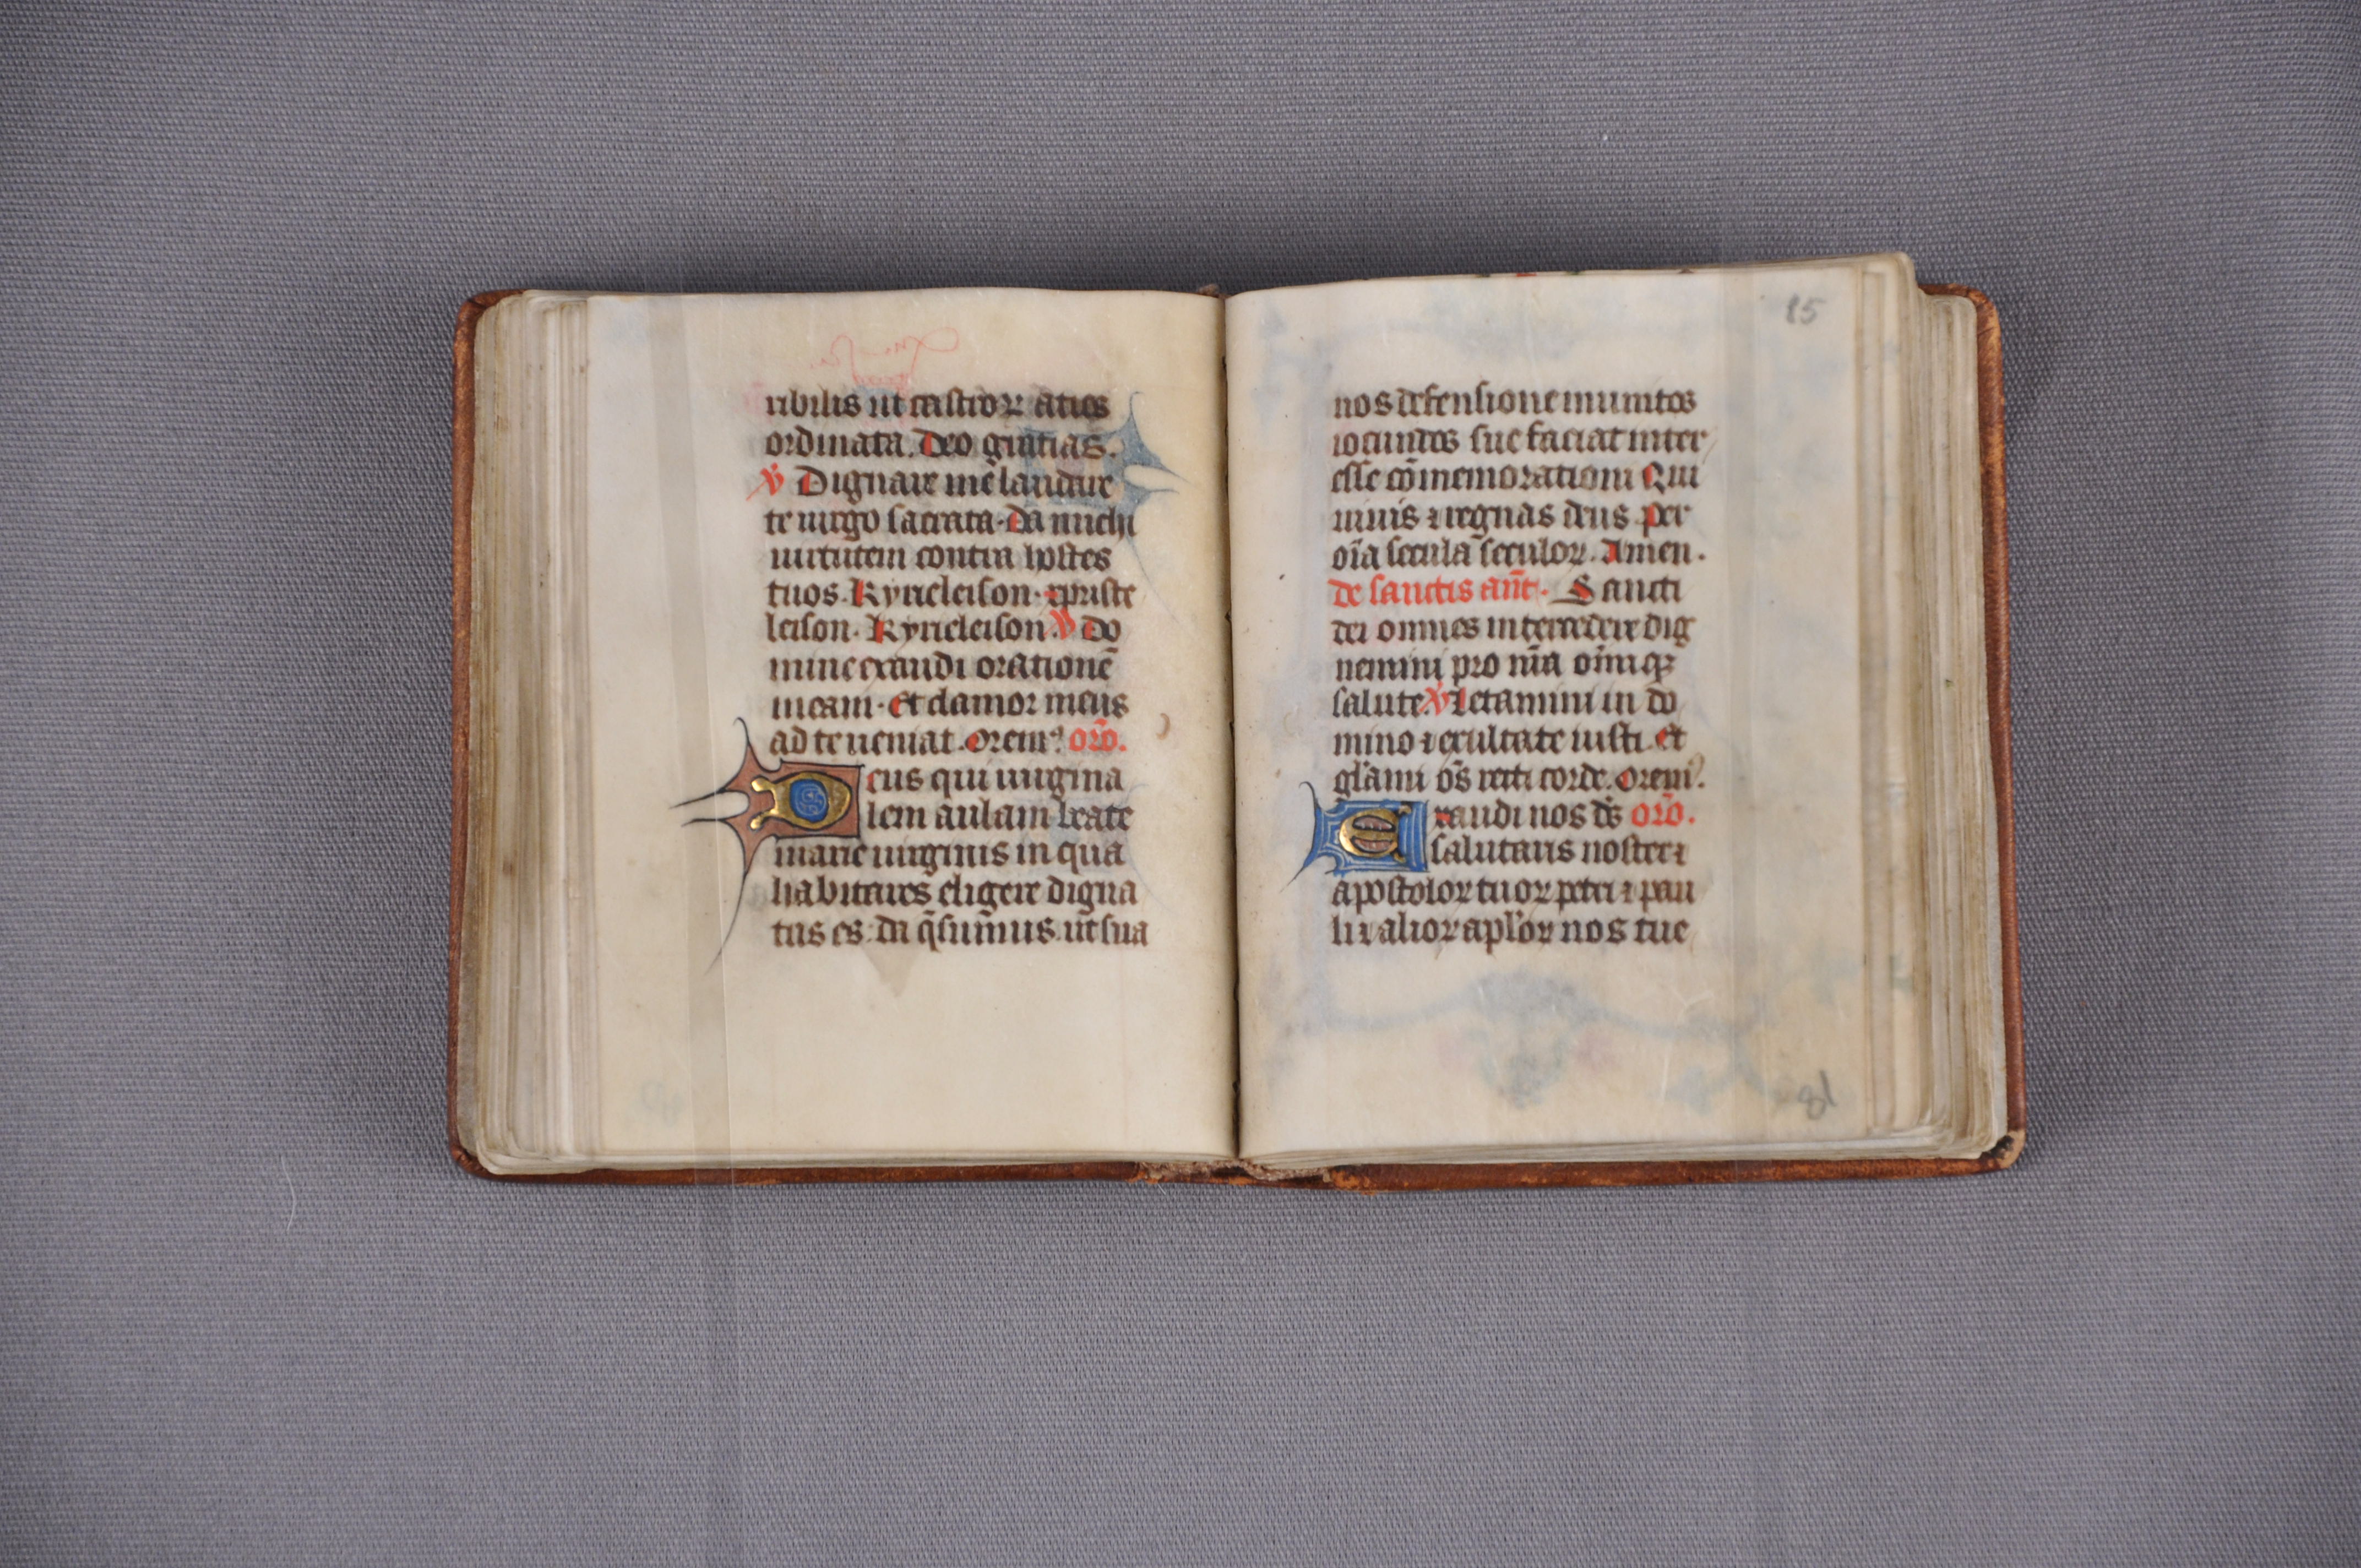 ribilis ut castror acies
ordinata. Deo gratias.
℣ Dignare me laudare
te uirgo sacrata. Da michi
uirtutem contra hostes
tuos. Kyrieleison. xpriste
leison. Kyrieleison. ℣ Do
mine exaudi orationē
meam. Et clamor meus
ad te ueniat. Orem⁹ orō.
Deus qui uirgina
lem aulam beate
marie uirginis in qua
habitares eligere digna
tus es. da q̄sum̄us. ut sua
15
nos defensione munitos
iocundos sue faciat inter
esse cōmemorationi Qui
uiuis ⁊ regnas deus per
oīa secula seculoꝝ. Amen.
de sanctis ant̄. Sancti
dei omnes intercedere dig
nemini pro nr̄a oīmqꝫ
salute. ℣ Letamini in do
mino ⁊ exultate iusti. et
gl'amī ōs recti corde. Orem⁹.
Exaudi nos ds̄ orō.
salutaris noster ⁊
apostoloꝝ tuoꝝ petri ⁊ pau
li ⁊ alioꝝ apl'oꝝ nos tue